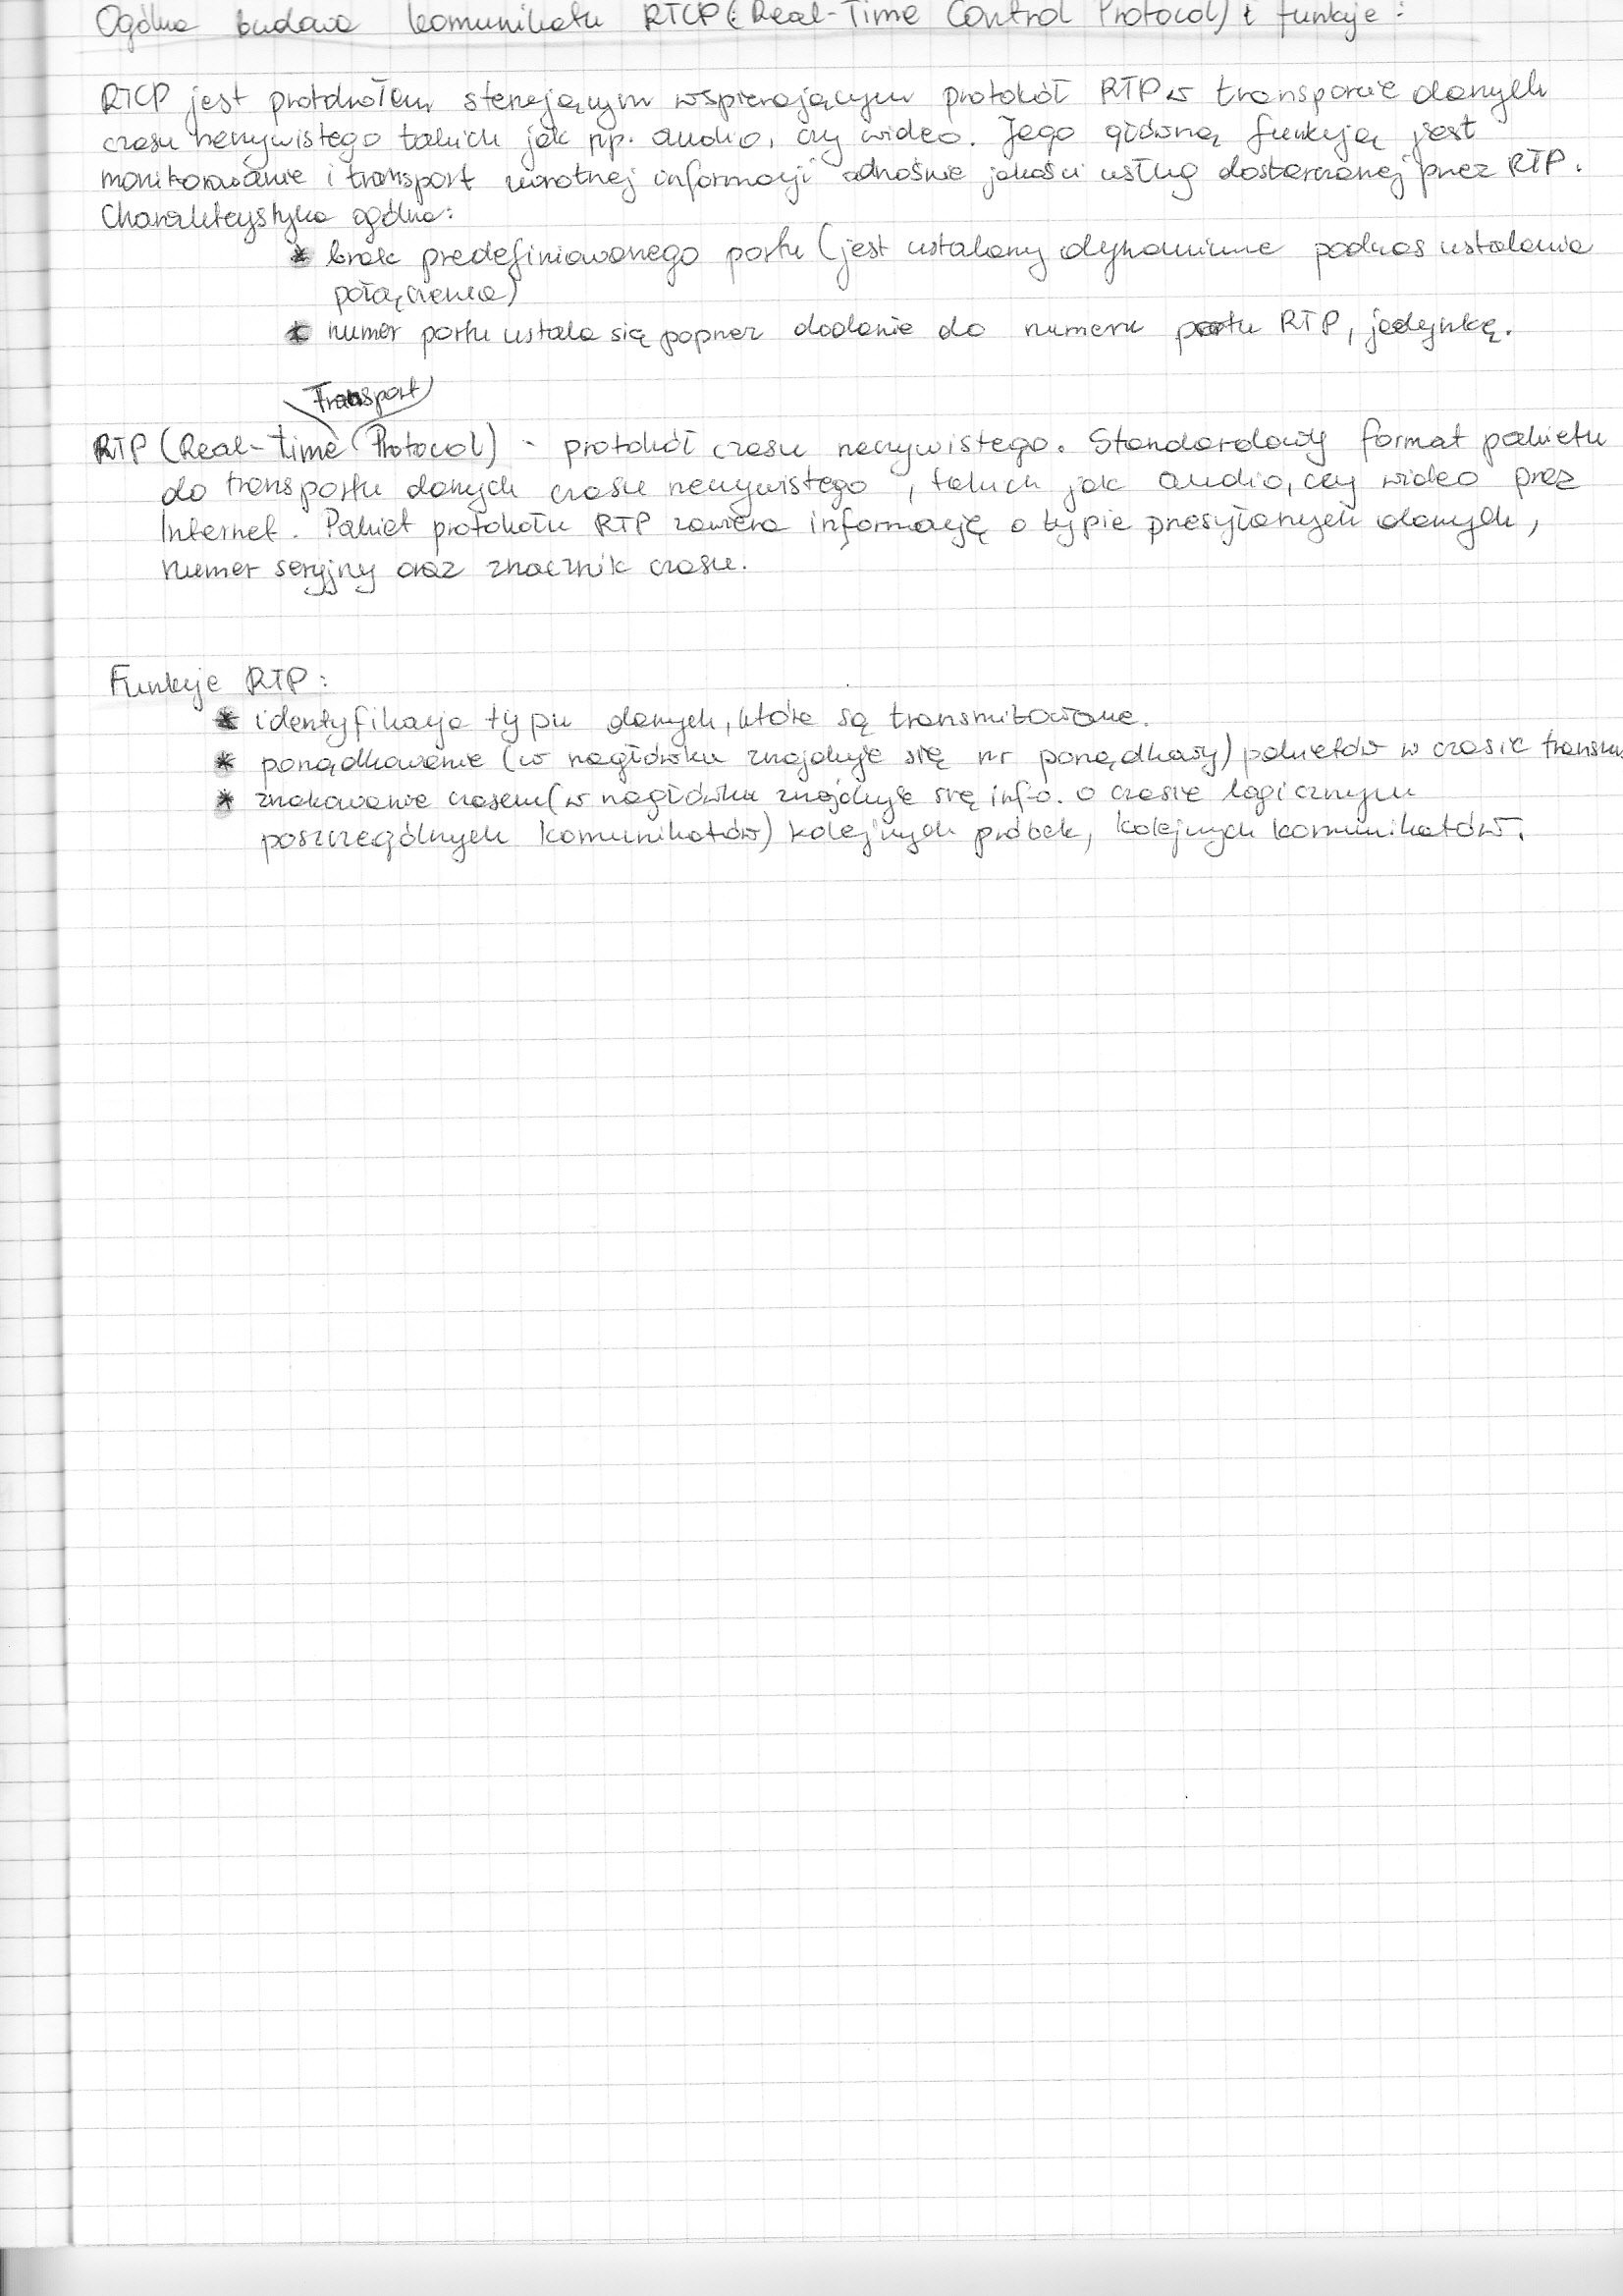 Ogólna budowa komunikatu RTCP (Real-Time Control Protocol) i funkcje:
RTCP jest protokołem sterującym wspierającym protokół RTP w transporcie danych
czasu rzeczywistego takich jak np. audio, czy wideo. Jego główną funkcją jest
monitorowanie i transport zwrotnej informacji odnośnie jakości usług dostarczanej przez RTP.
Charakterystyka ogólna:
* brak predefiniowanego portu (jest ustalany dynamicznie podczas ustalania
połączenia)
* numer portu ustala się poprzez dodanie do numeru portu RTP, jedynkę.
Transport
RTP (Real-Time Protocol) - protokół czasu rzeczywistego. Standardowy format pakietu
do transportu danych czasu rzeczywistego, takich jak audio, czy wideo przez
Internet. Pakiet protokołu RTP zawiera informację o typie przesyłanych danych,
numer seryjny oraz znacznik czasu.
Funkcje RTP:
* identyfikacja typu danych, które są transmitowane.
* porządkowanie (w nagłówku znajduje się nr porządkowy) pakietów w czasie
* znakowanie czasem (w nagłówku znajduje się info. o czasie logicznym
poszczególnych komunikatów) kolejnych próbek, kolejnych komunikatów.